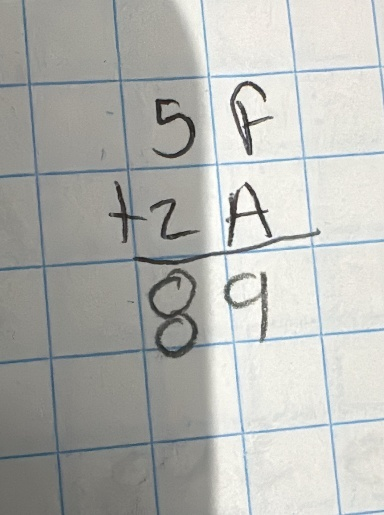 5 F
+2 A
8 9